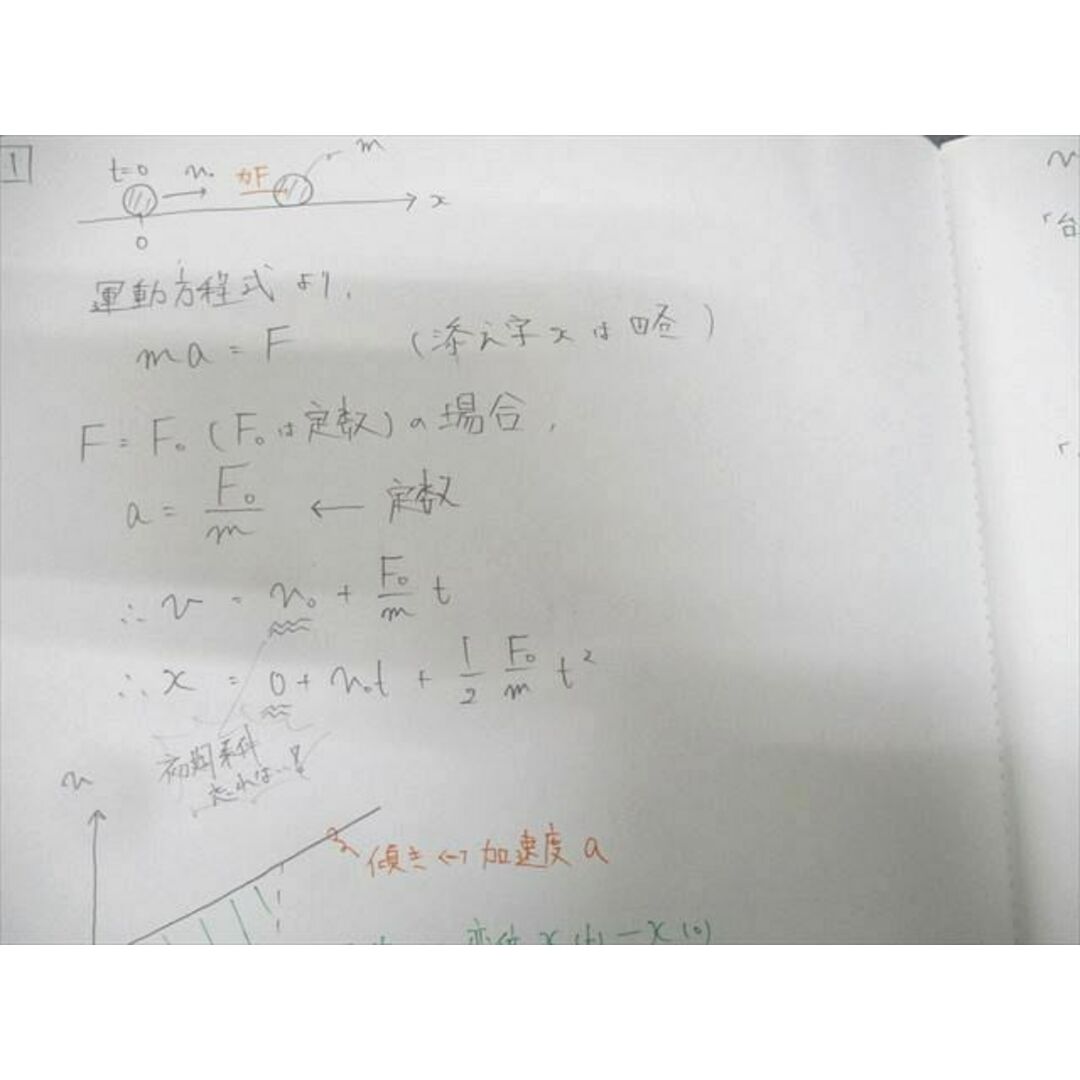 1
t=0 v₀ 力F m
x
0
運動方程式より,
ma = F (添え字xは略)
F = F₀ (F₀は定数) の場合,
a = F₀/m ← 定数
∴ v = v₀ + F₀/m t
∴ x = 0 + v₀t + 1/2 F₀/m t²
初期条件
v
傾き ↔ 加速度 a
x(t) − x(0)
「台